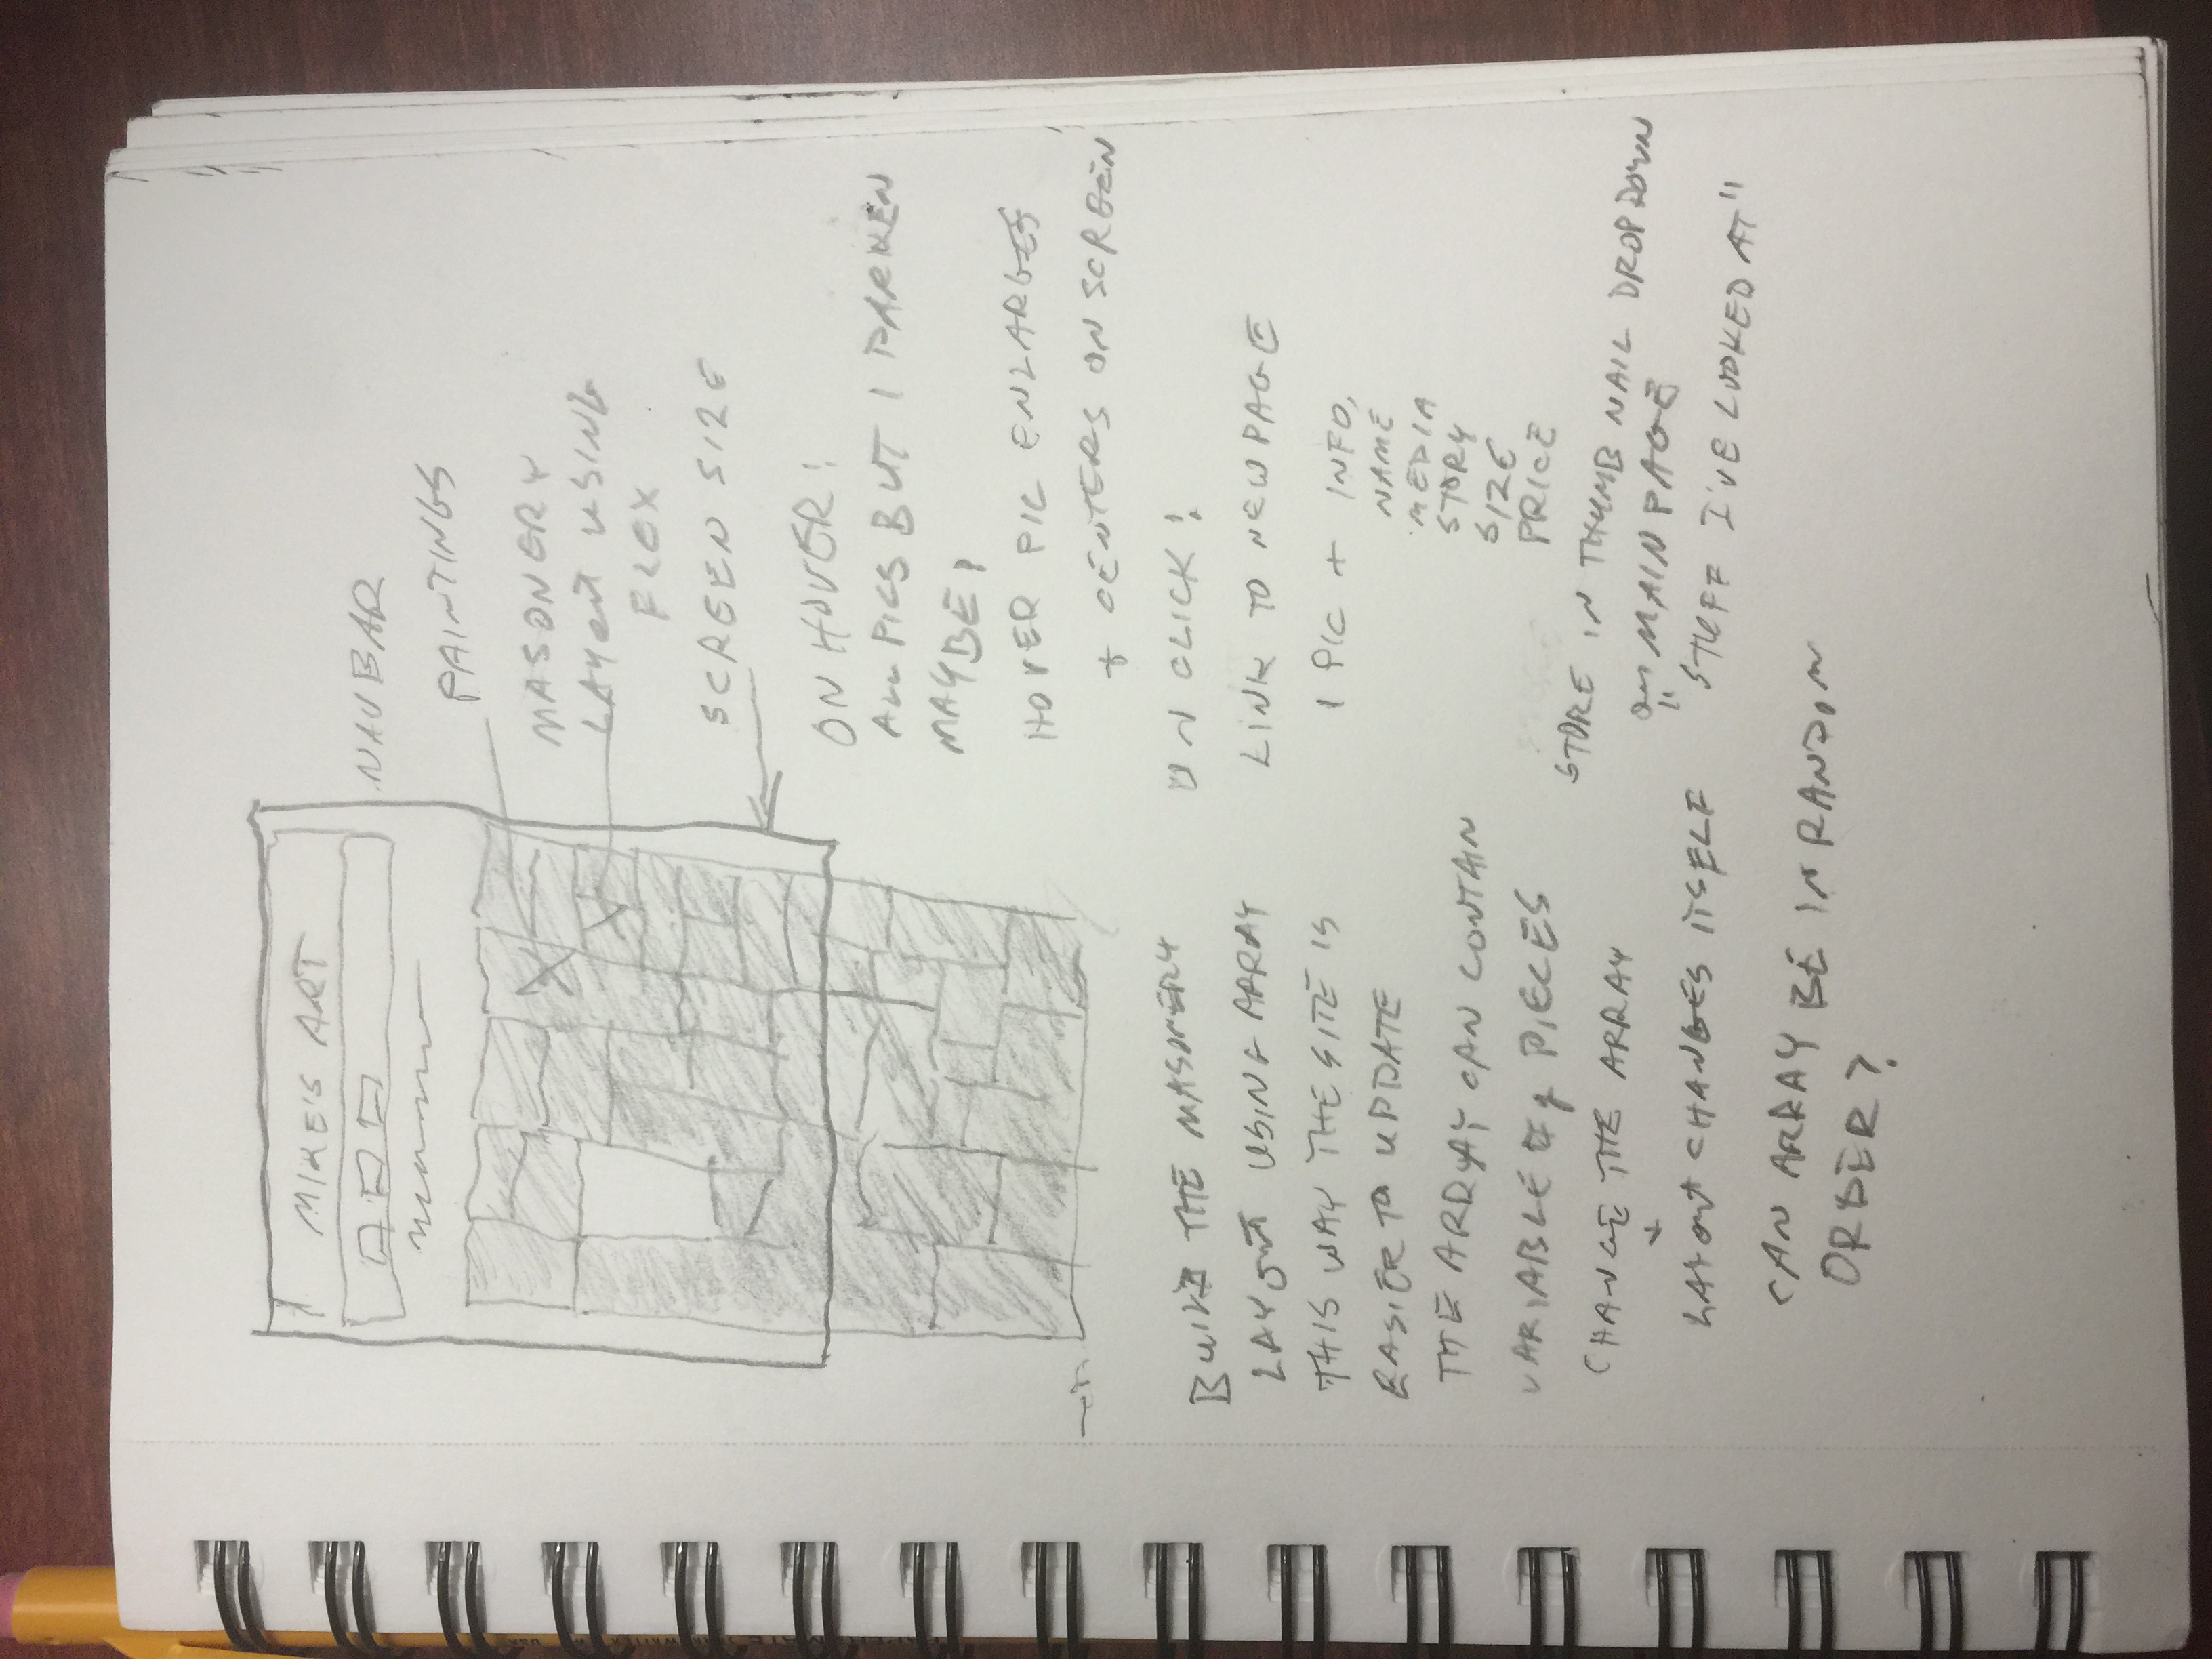 MIKE'S ART
NAVBAR
PAINTINGS
MASONERY
LAYOUT USING
FLEX
SCREEN SIZE
ON HOVER!
ALL PICS BUT 1 DARKEN
MAYBE,
HOVER PIC ENLARGES
+ CENTERS ON SCREEN
ON CLICK!
LINK TO NEW PAGE
1 PIC + INFO,
NAME
MEDIA
STORY
SIZE
PRICE
STORE IN THUMB NAIL DROPDOWN
ON MAIN PAGE
"STUFF I'VE LOOKED AT"
BUILD THE MASONERY
LAYOUT USING ARRAY
THIS WAY THE SITE IS
EASIER TO UPDATE
THE ARRAY CAN CONTAIN
VARIABLE # of PIECES
CHANGE THE ARRAY
+
LAYOUT CHANGES ITSELF
CAN ARRAY BE IN RANDOM
ORDER?